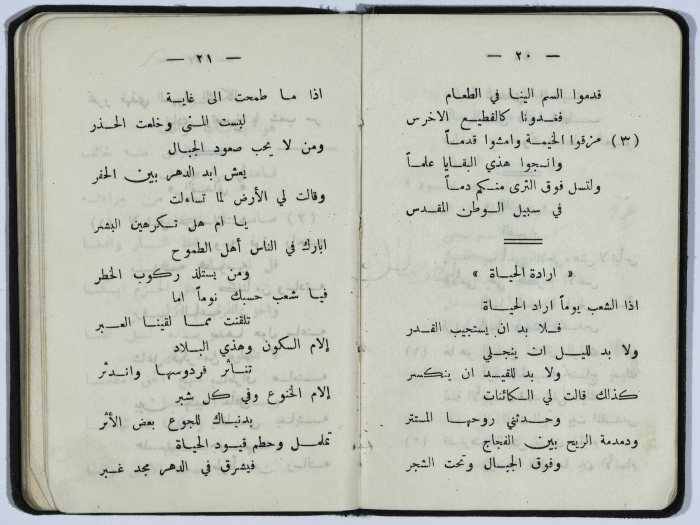 — ٢٠ —
قدموا السم الينا في الطعام
فغدونا كالقطيع الاخرس
(٣) مزقوا الخيمة وامشوا قدماً
وانسجوا هذي البقايا علماً
ولتسل فوق الثرى منكم دماً
في سبيل الوطن المقدس
« ارادة الحياة »
اذا الشعب يوماً اراد الحياة
فلا بد ان يستجيب القدر
ولا بد لليل ان ينجلي
ولا بد للقيد ان ينكسر
كذلك قالت لي الكائنات
وحدثني روحها المستتر
ودمدمة الريح بين الفجاج
وفوق الجبال وتحت الشجر
— ٢١ —
اذا ما طمحت الى غاية
لبست المنى وخلعت الحذر
ومن لا يحب صعود الجبال
يعش ابد الدهر بين الحفر
وقالت لي الأرض لما تساءلت
يا ام هل تكرهين البشر
ابارك في الناس أهل الطموح
ومن يستلذ ركوب الخطر
فيا شعب حسبك نوماً اما
تلقنت مما لقينا العبر
إلام السكون وهذي البلاد
تناثر فردوسها واندثر
إلام الخنوع وفي كل شبر
بدنياك للجوع بعض الأثر
تململ وحطم قيود الحياة
فيشرق في الدهر مجد غبر